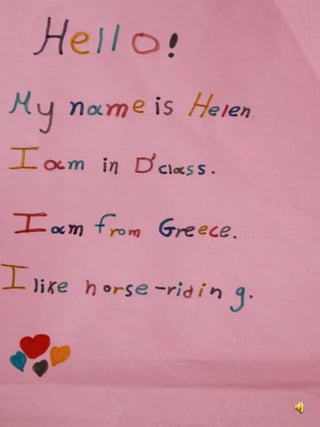 Hello!
My name is Helen.
I am in D'class.
I am from Greece.
I like horse-riding.